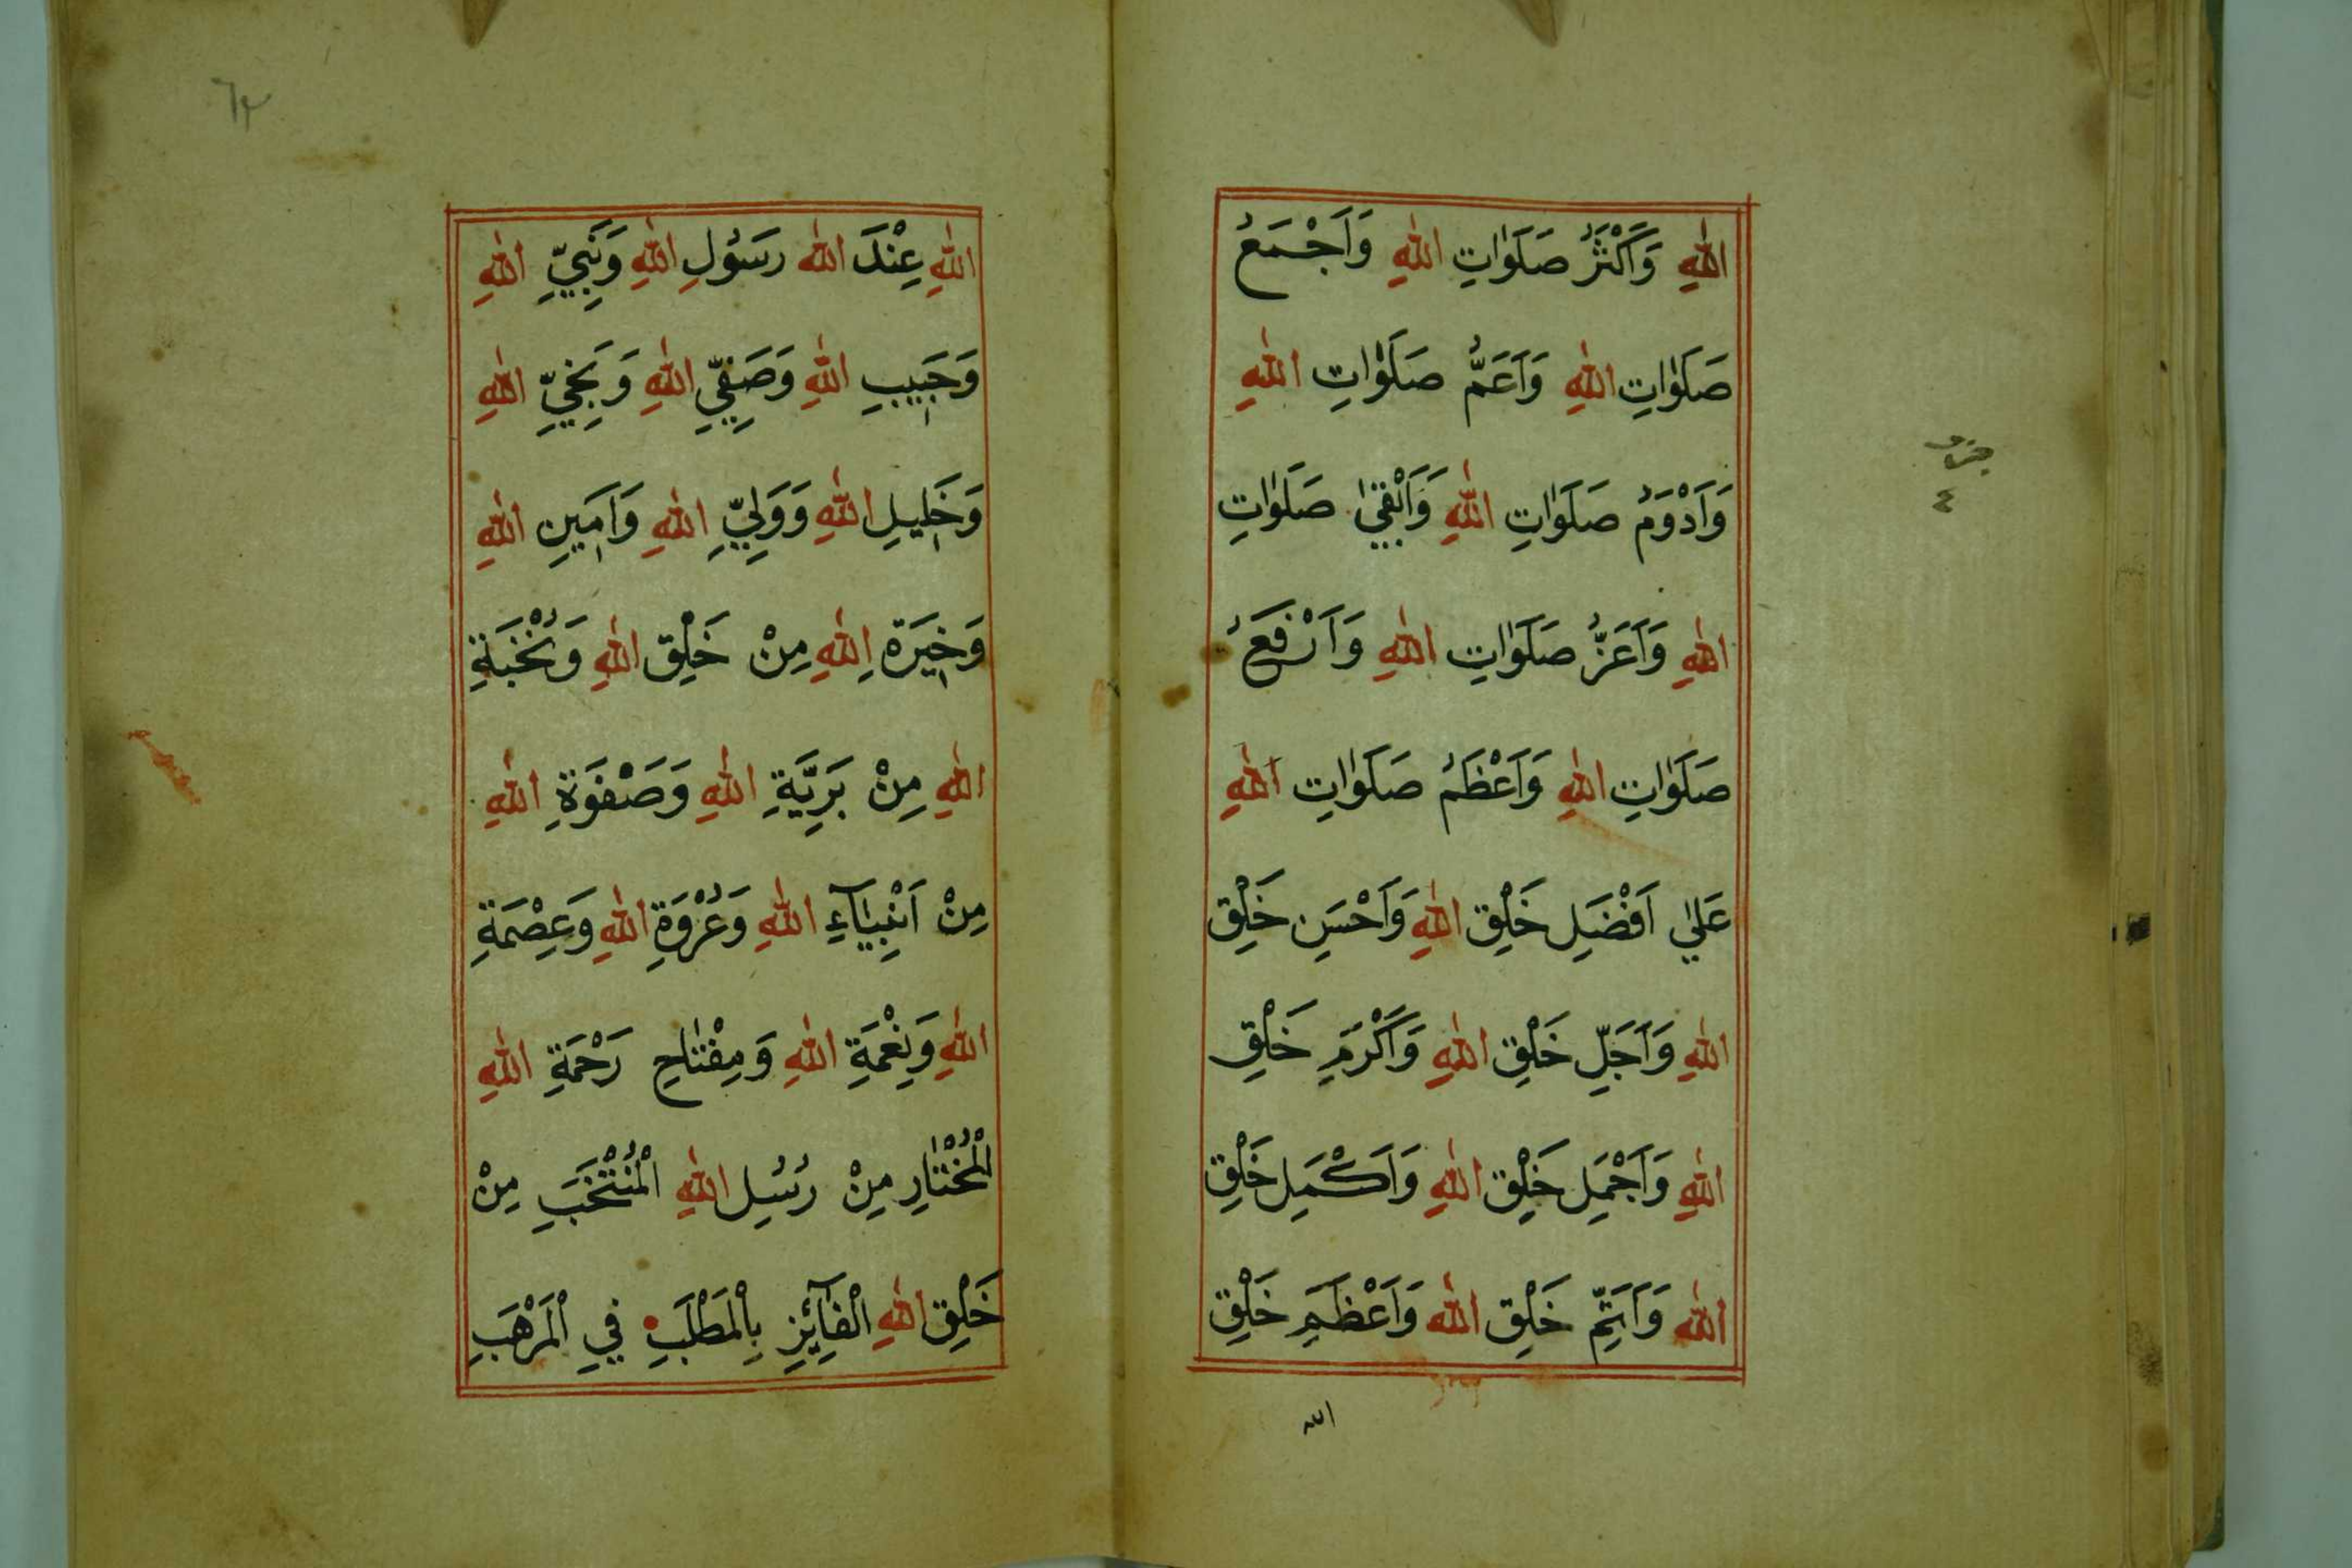 اللّٰهِ وَاَكْثَرُ صَلَوٰاتِ اللّٰهِ وَاَجْمَعُ
صَلَوٰاتِ اللّٰهِ وَاَعَمُّ صَلَوٰاتِ اللّٰهِ
وَاَدْوَمُ صَلَوٰاتِ اللّٰهِ وَاَبْقٰي صَلَوٰاتِ
اللّٰهِ وَاَعَزُّ صَلَوٰاتِ اللّٰهِ وَاَرْفَعُ
صَلَوٰاتِ اللّٰهِ وَاَعْظَمُ صَلَوٰاتِ اللّٰهِ
عَلٰي اَفْضَلِ خَلْقِ اللّٰهِ وَاَحْسَنِ خَلْقِ
اللّٰهِ وَاَجَلِّ خَلْقِ اللّٰهِ وَاَكْرَمِ خَلْقِ
اللّٰهِ وَاَجْمَلِ خَلْقِ اللّٰهِ وَاَكْمَلِ خَلْقِ
اللّٰهِ وَاَتَمِّ خَلْقِ اللّٰهِ وَاَعْظَمِ خَلْقِ
الله
جزو
٤
اللّٰهِ عِنْدَ اللّٰهِ رَسُولِ اللّٰهِ وَنَبِيِّ اللّٰهِ
وَحَبِيبِ اللّٰهِ وَصَفِيِّ اللّٰهِ وَنَجِيِّ اللّٰهِ
وَخَلِيلِ اللّٰهِ وَوَلِيِّ اللّٰهِ وَاَمِينِ اللّٰهِ
وَخِيَرَةِ اللّٰهِ مِنْ خَلْقِ اللّٰهِ وَنُخْبَةِ
اللّٰهِ مِنْ بَرِيَّةِ اللّٰهِ وَصَفْوَةِ اللّٰهِ
مِنْ اَنْبِيَآءِ اللّٰهِ وَعُرْوَةِ اللّٰهِ وَعِصْمَةِ
اللّٰهِ وَنِعْمَةِ اللّٰهِ وَمِفْتَاحِ رَحْمَةِ اللّٰهِ
الْمُخْتَارِ مِنْ رُسُلِ اللّٰهِ الْمُنْتَخَبِ مِنْ
خَلْقِ اللّٰهِ الْفَآئِزِ بِالْمَطْلَبِ فِي الْمَرْهَبِ